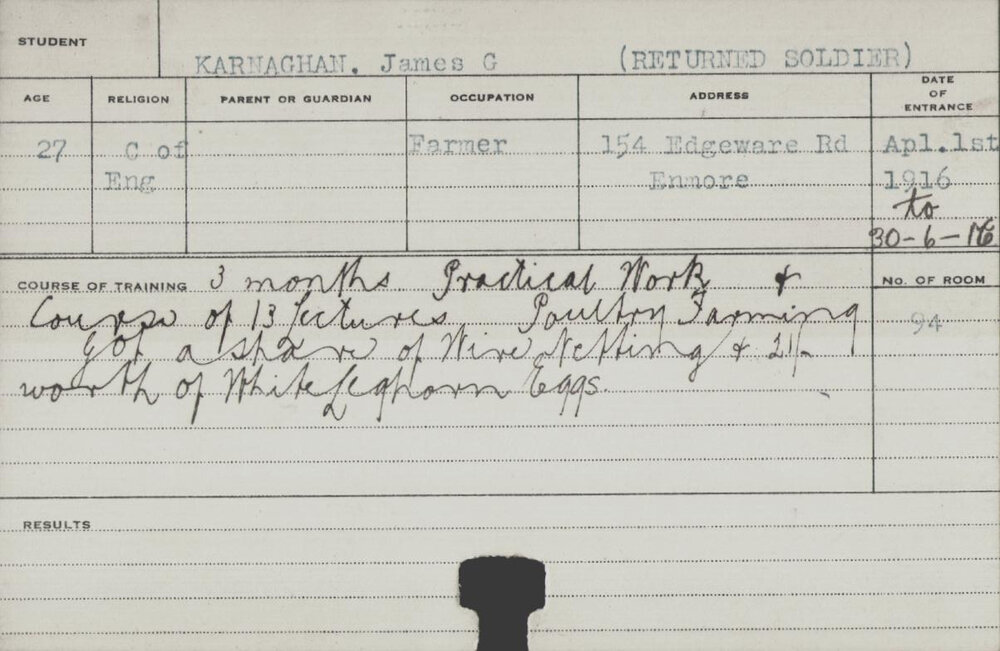 STUDENT
KARNAGHAN. James G (RETURNED SOLDIER)
AGE RELIGION PARENT OR GUARDIAN OCCUPATION ADDRESS DATE OF ENTRANCE
27 C of Farmer 154 Edgeware Rd Apl.1st
Eng Enmore 1916
to
30-6-16
COURSE OF TRAINING 3 months Practical Work & No. OF ROOM
Course of 13 lectures Poultry Farming 94
Got a share of Wire Netting & 21/-
worth of White Leghorn Eggs.
RESULTS